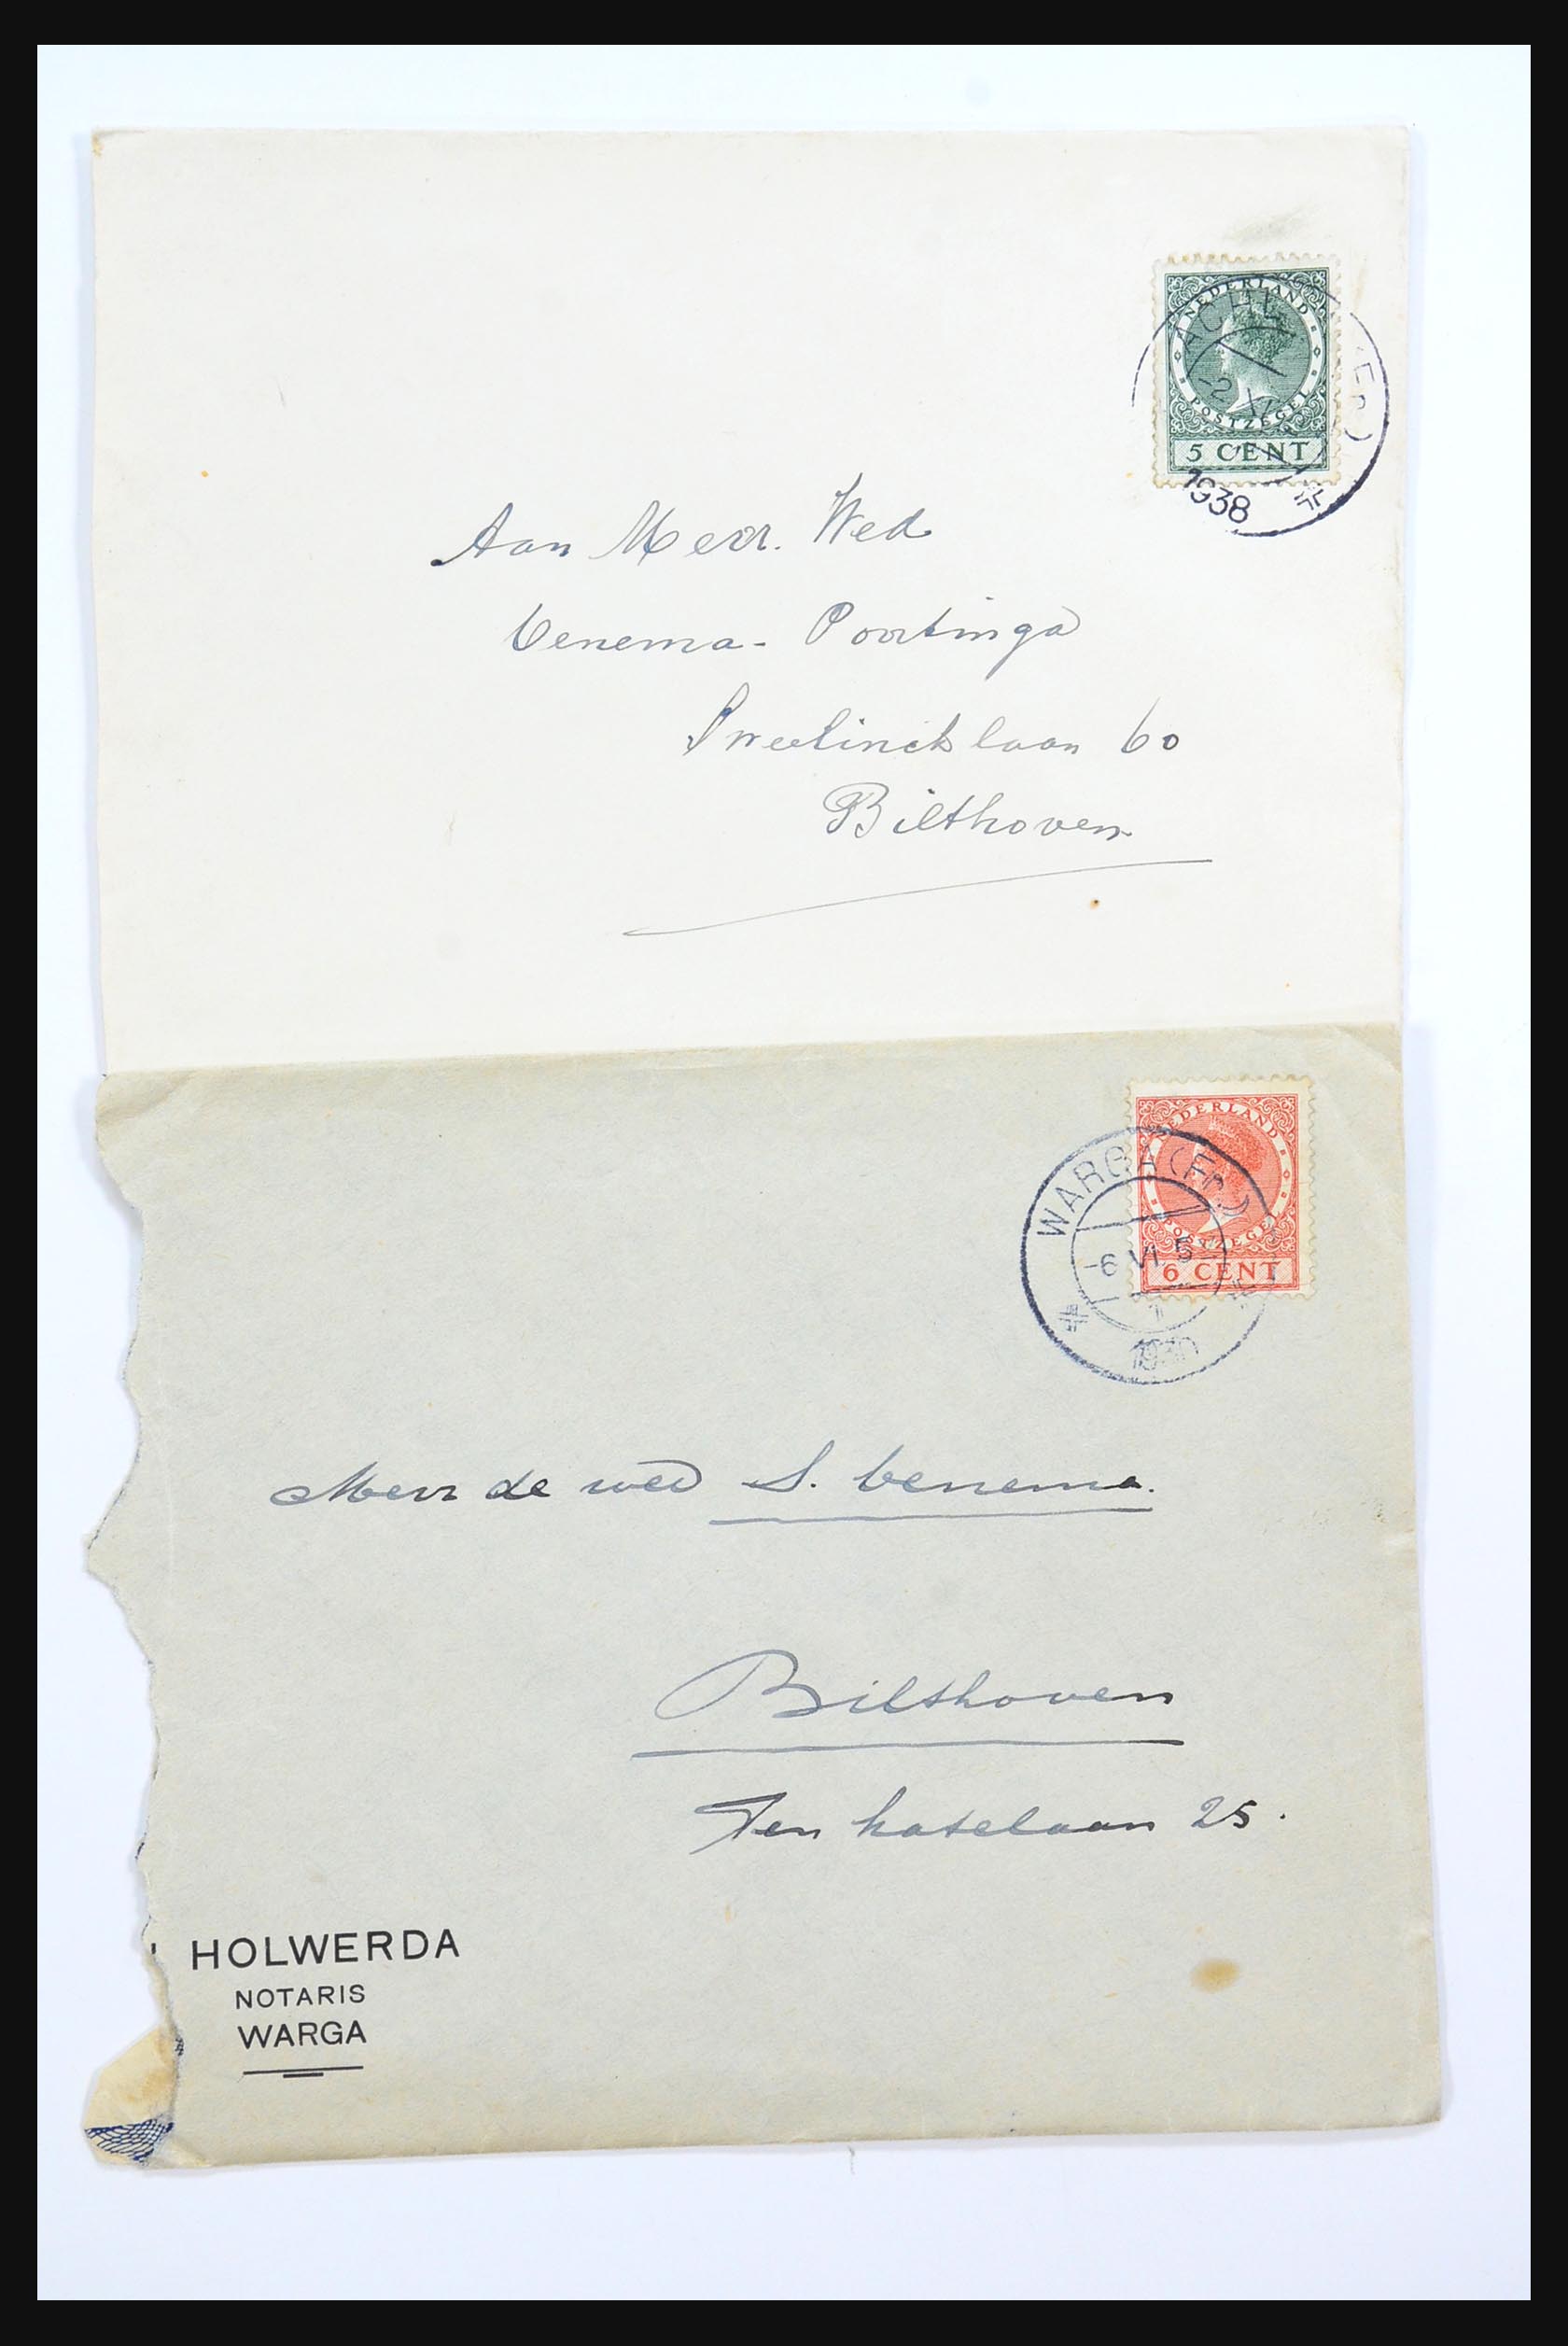 NEDERLAND
POSTZEGEL
5 CENT
-2 XI
1938
Aan Mevr. Wed
Venema - Poortinga
Sweelincklaan 60
Bilthoven
NEDERLAND
POSTZEGEL
6 CENT
WARGA (Fr.)
-6 VI 5
1
1930
Mevr de wed S. Venema.
Bilthoven
Ten Katelaan 25.
HOLWERDA
NOTARIS
WARGA